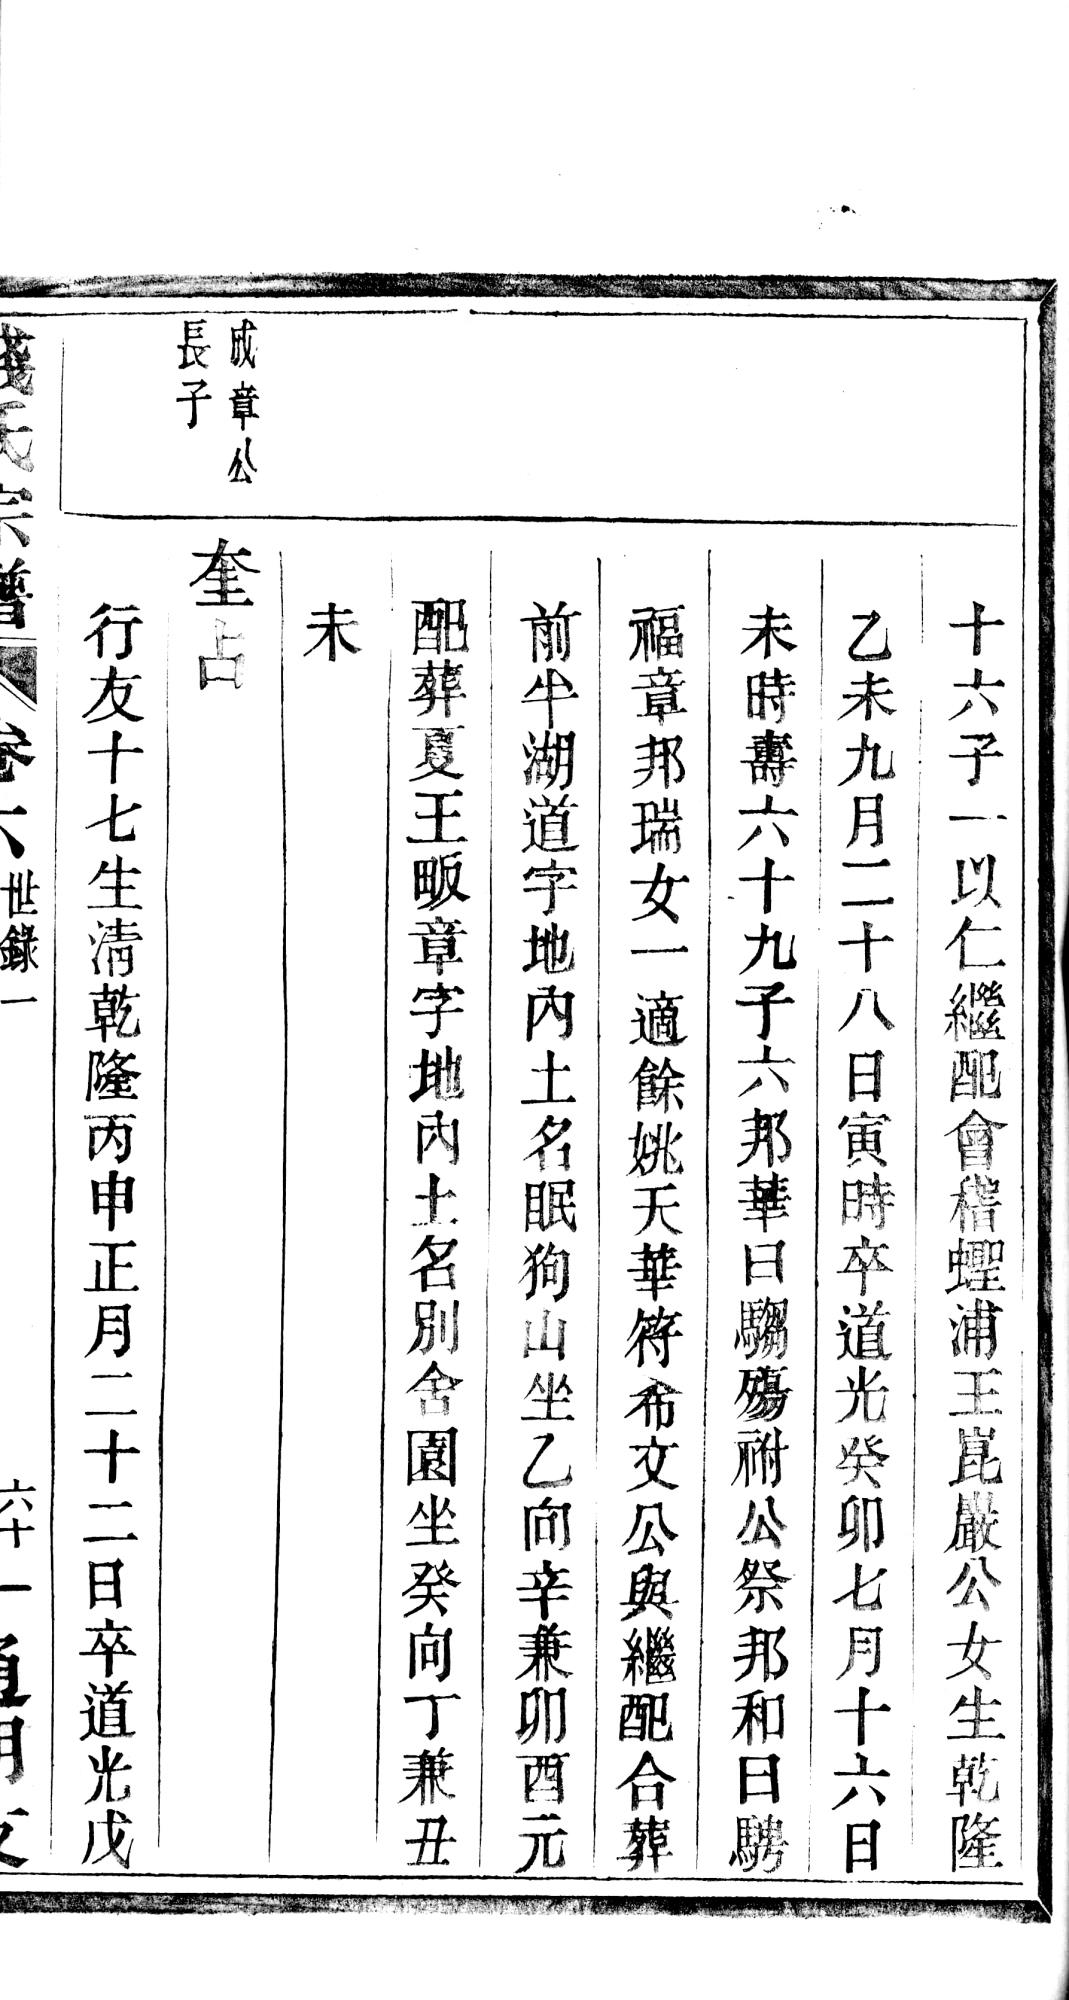 十六子一以仁繼配會稽蟶浦王崑嚴公女生乾隆
乙未九月二十八日寅時卒道光癸卯七月十六日
未時壽六十九子六邦華曰騶殤祔公祭邦和曰騁
福章邦瑞女一適餘姚天華符希文公與繼配合葬
前牛湖道字地內土名眠狗山坐乙向辛兼卯酉元
配葬夏王畈章字地內土名別舍園坐癸向丁兼丑
未
成章公
長子
奎占
行友十七生清乾隆丙申正月二十二日卒道光戊
錢氏宗譜
卷六
世錄一
六十一